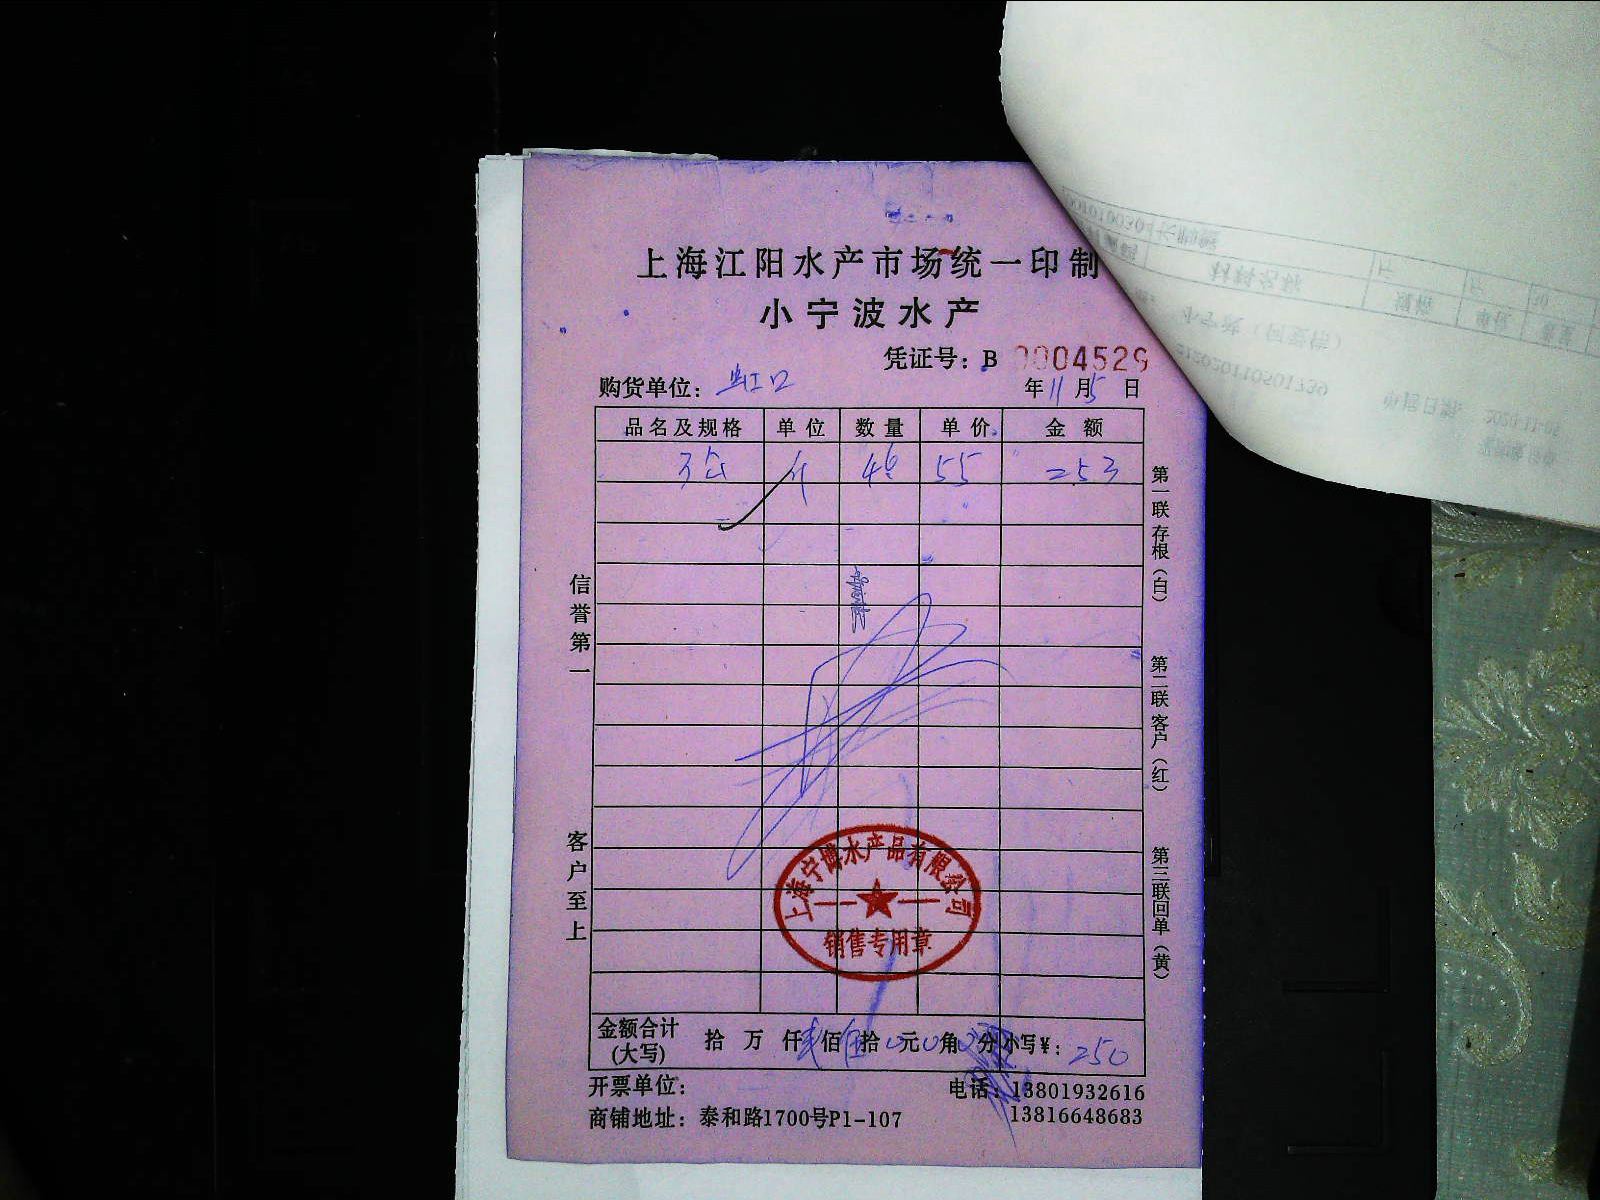 上海江阳水产市场统一印制
小宁波水产
凭证号：B 0004529
购货单位：虹口 年11月5日
品名及规格 单位 数量 单价 金额
斤 46 55 253
信誉第一
客户至上
第一联存根（白）
第二联客户（红）
第三联回单（黄）
上海宁博水产品有限公司
销售专用章
金额合计（大写） 拾 万 仟 贰佰 伍拾 0元 0角 0分 小写¥：250
开票单位：
电话：13801932616
商铺地址：泰和路1700号P1-107
13816648683
材料名称
小宁波